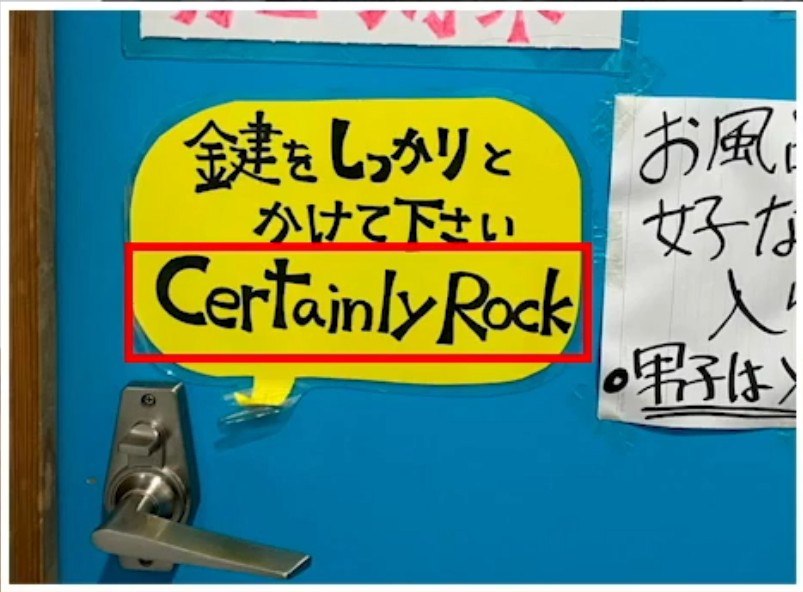 鍵をしっかりと
かけて下さい
Certainly Rock
お風
好子な
入り
・男子は